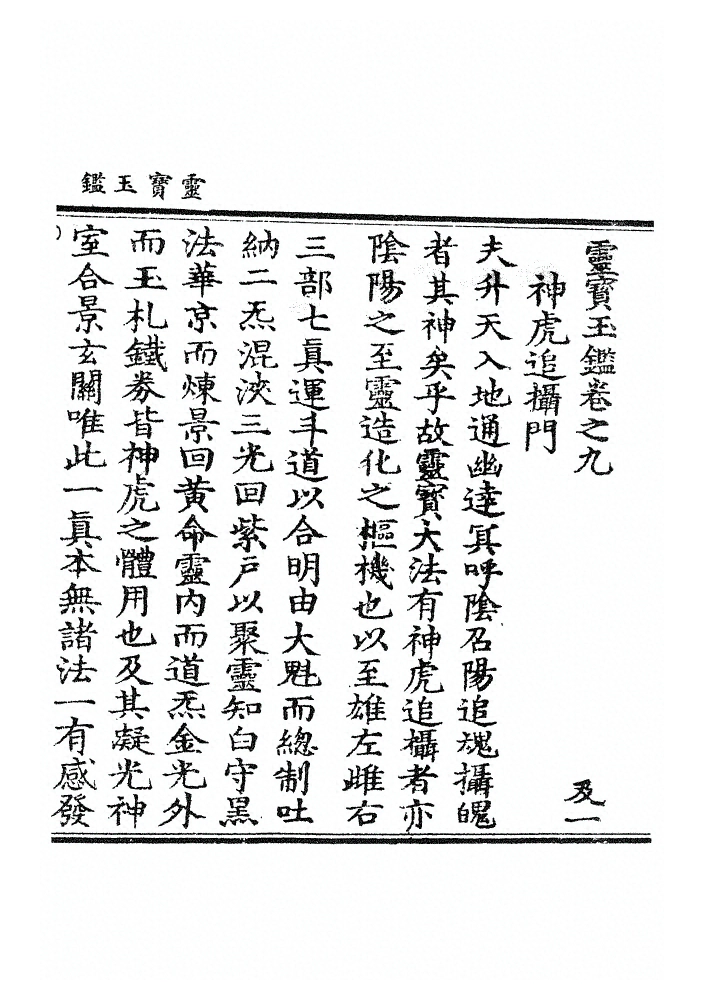 靈寶玉鑑
靈寶玉鑑卷之九
及一
神虎追攝門
夫升天入地通幽達冥呼陰召陽追魂攝魄
者其神矣乎故靈寶大法有神虎追攝者亦
陰陽之至靈造化之樞機也以至雄左雌右
三部七眞運斗道以合明由大魁而總制吐
納二炁混浹三光回紫戶以聚靈知白守黑
法華京而煉景回黃命靈內而道炁金光外
而玉札鐵券皆神虎之體用也及其凝光神
室合景玄關唯此一眞本無諸法一有感發